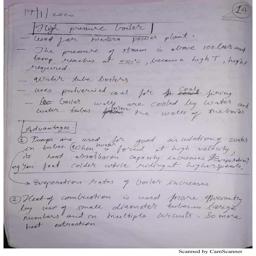 High pressure boiler
Used for modern power plant.
The pressure of steam is above 100 bar and
temp reaches at 550°C, because high T, high
required
Water tube boilers
uses pulverized coal for firing
boiler walls are cooled by water and
water tubes the walls of the boiler
Advantages
① Pumps are used for good circulation of water
in boiler (When is forced at high velocity,
its heat absorption capacity increases
→ Evaporation rates of boiler increases
② Heat of combustion is used more efficiently
by use of small diameter tubes in large
numbers and in multiple circuits. So more
heat extraction
Scanned by CamScanner